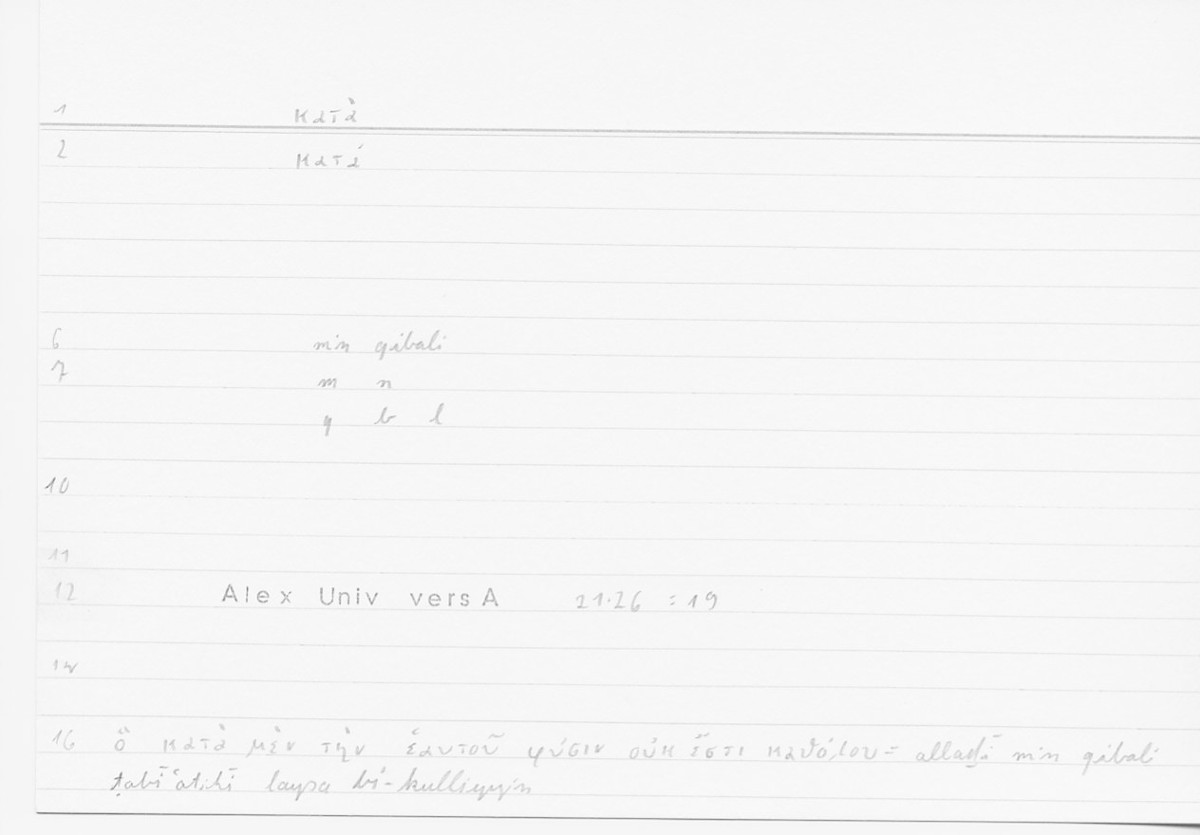 1 κατὰ
2 κατά
6 min qibali
7 m n
q b l
10
11
12 Alex Univ vers A 21.26 = 19
14
16 ὃ κατὰ μὲν τὴν ἑαυτοῦ φύσιν οὐκ ἔστι καθόλου = allaḏī min qibali
ṭabīʿatihī laysa bi-kulliyyin